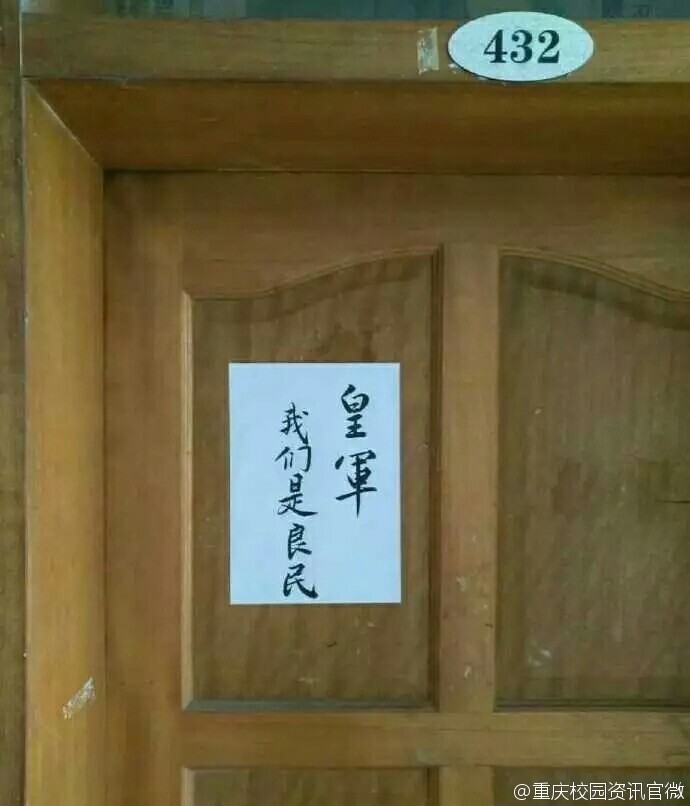 432
皇軍
我们是良民
@重庆校园资讯官微